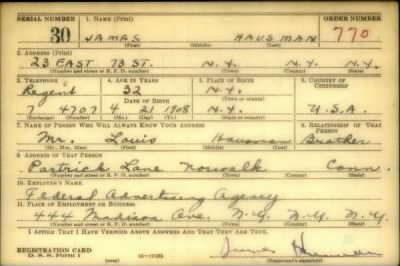 SERIAL NUMBER 1. NAME (Print) ORDER NUMBER
30 JAMES HAUSMAN 770
(First) (Middle) (Last)
2. ADDRESS (Print)
23 EAST 73 ST. N.Y. N.Y. N.Y.
(Number and street or R. F. D. number) (Town) (County) (State)
3. TELEPHONE 4. AGE IN YEARS 5. PLACE OF BIRTH 6. COUNTRY OF CITIZENSHIP
Regent 32 N.Y.
DATE OF BIRTH (Town or county)
7 4707 4 21 1908 N.Y. U.S.A.
(Exchange) (Number) (Mo.) (Day) (Yr.) (State or country)
7. NAME OF PERSON WHO WILL ALWAYS KNOW YOUR ADDRESS 8. RELATIONSHIP OF THAT PERSON
Mr. Louis Hausman Brother
(Mr., Mrs., Miss) (First) (Middle) (Last)
9. ADDRESS OF THAT PERSON
Partrick Lane Norwalk Conn.
(Number and street or R. F. D. number) (Town) (County) (State)
10. EMPLOYER'S NAME
Federal Advertising Agency
11. PLACE OF EMPLOYMENT OR BUSINESS
444 Madison Ave. N.Y. N.Y. N.Y.
(Number and street or R. F. D. number) (Town) (County) (State)
I AFFIRM THAT I HAVE VERIFIED ABOVE ANSWERS AND THAT THEY ARE TRUE.
REGISTRATION CARD James Hausman
D. S. S. Form 1 (over) (Registrant's signature)